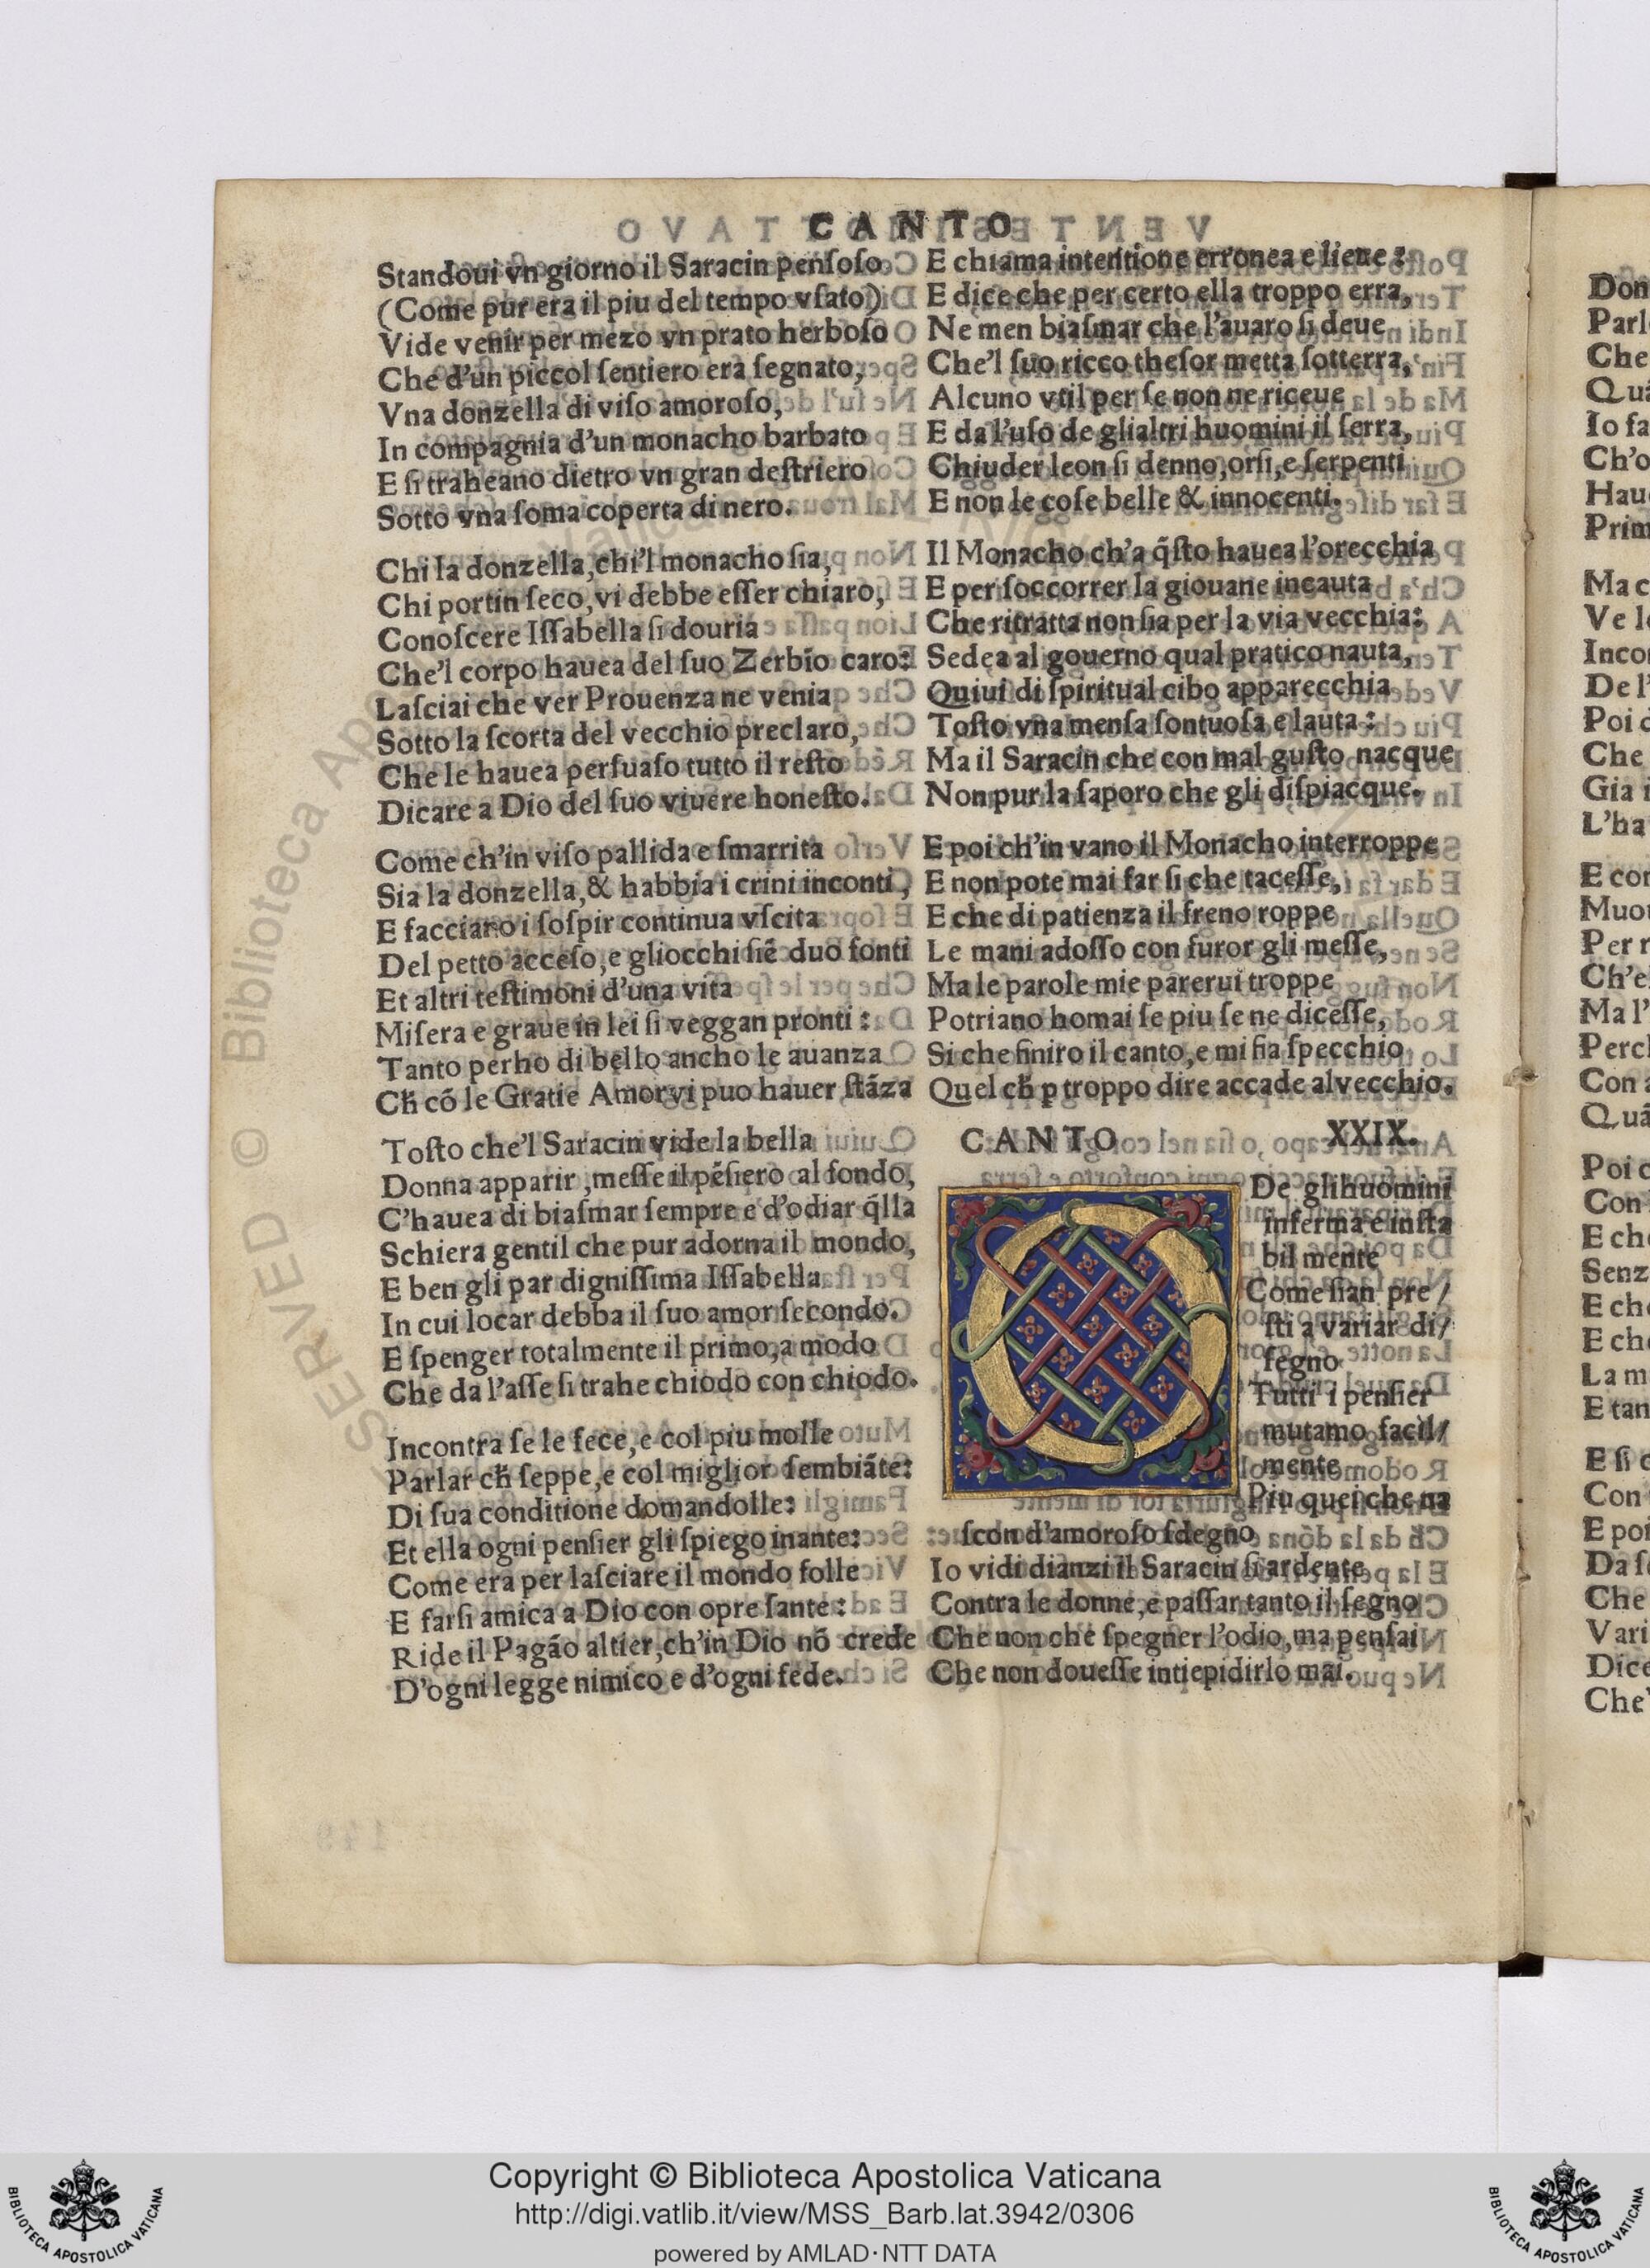 CANTO
Standoui vn giorno il Saracin penſoſo
(Come pur era il piu del tempo vſato)
Vide venir per mezo vn prato herboſo
Che d'un piccol ſentiero era ſegnato,
Vna donzella di viſo amoroſo,
In compagnia d'un monacho barbato
E ſi traheano dietro vn gran deſtriero
Sotto vna ſoma coperta di nero.
Chi la donzella, chi'l monacho ſia,
Chi portin ſeco, vi debbe eſſer chiaro,
Conoſcere Iſſabella ſi douria
Che'l corpo hauea del ſuo Zerbio caro:
Laſciai che ver Prouenza ne venia
Sotto la ſcorta del vecchio preclaro,
Che le hauea perſuaſo tutto il reſto
Dicare a Dio del ſuo viuere honeſto.
Come ch'in viſo pallida e ſmarrita
Sia la donzella, & habbia i crini inconti,
E facciano i ſoſpir continua vſcita
Del petto acceſo, e gliocchi ſiē duo fonti
Et altri teſtimoni d'una vita
Miſera e graue in lei ſi veggan pronti:
Tanto perho di bello ancho le auanza
Cħ cō le Gratie Amor vi puo hauer ſtāza
Toſto che'l Saracin vide la bella
Donna apparir, meſſe il pēſiero al fondo,
C'hauea di biaſmar ſempre e d'odiar q̄lla
Schiera gentil che pur adorna il mondo,
E ben gli par digniſſima Iſſabella
In cui locar debba il ſuo amor ſecondo.
E ſpenger totalmente il primo, a modo
Che da l'aſſe ſi trahe chiodo con chiodo.
Incontra ſe le fece, e col piu molle
Parlar cħ ſeppe, e col miglior ſembiāte:
Di ſua conditione domandolle:
Et ella ogni penſier gli ſpiego inante:
Come era per laſciare il mondo folle
E farſi amica a Dio con opre ſante:
Ride il Pagāo altier, ch'in Dio nō crede
D'ogni legge nimico e d'ogni fede.
E chiama intentione erronea e lieue:
E dice che per certo ella troppo erra,
Ne men biaſmar che l'auaro ſi deue
Che'l ſuo ricco theſor metta ſotterra,
Alcuno vtil per ſe non ne riceue
E da l'uſo de glialtri huomini il ſerra,
Chiuder leon ſi denno, orſi, e ſerpenti
E non le coſe belle & innocenti.
Il Monacho ch'a q̄ſto hauea l'orecchia
E per ſoccorrer la giouane incauta
Che ritratta non ſia per la via vecchia:
Sedea al gouerno qual pratico nauta,
Quiui di ſpiritual cibo apparecchia
Toſto vna menſa ſontuoſa e lauta:
Ma il Saracin che con mal guſto nacque
Non pur la ſaporo che gli diſpiacque.
E poi ch'in vano il Monacho interroppe
E non pote mai far ſi che taceſſe,
E che di patienza il freno roppe
Le mani adoſſo con furor gli meſſe,
Ma le parole mie parerui troppe
Potriano homai ſe piu ſe ne diceſſe,
Si che finiro il canto, e mi fia ſpecchio
Quel cħ ꝑ troppo dire accade al vecchio.
CANTO XXIX.
O De glihuomini
inferma e inſta
bil mente
Come ſian pre/
ſti a variar di/
ſegno
Tutti i penſier
mutamo facil/
mente
Piu quei che na
ſcon d'amoroſo ſdegno
Io vidi dianzi il Saracin ſi ardente
Contra le donne, e paſſar tanto il ſegno
Che non che ſpegner l'odio, ma penſai
Che non doueſſe intiepidirlo mai.
Don
Parl
Che
Quā
Io fa
Ch'o
Hau
Prim
Ma c
Ve l
Inco
De l'
Poi
Che
Gia i
L'ha
E con
Muo
Per r
Ch'e
Ma l'
Perc
Con
Quā
Poi c
Con
E che
Senz
E che
E che
La m
E tan
E ſi c
Con
E poi
Da ſ
Che
Vari
Dice
Che'
Copyright © Biblioteca Apostolica Vaticana
http://digi.vatlib.it/view/MSS_Barb.lat.3942/0306
powered by AMLAD·NTT DATA
BIBLIOTECA APOSTOLICA VATICANA
BIBLIOTECA APOSTOLICA VATICANA